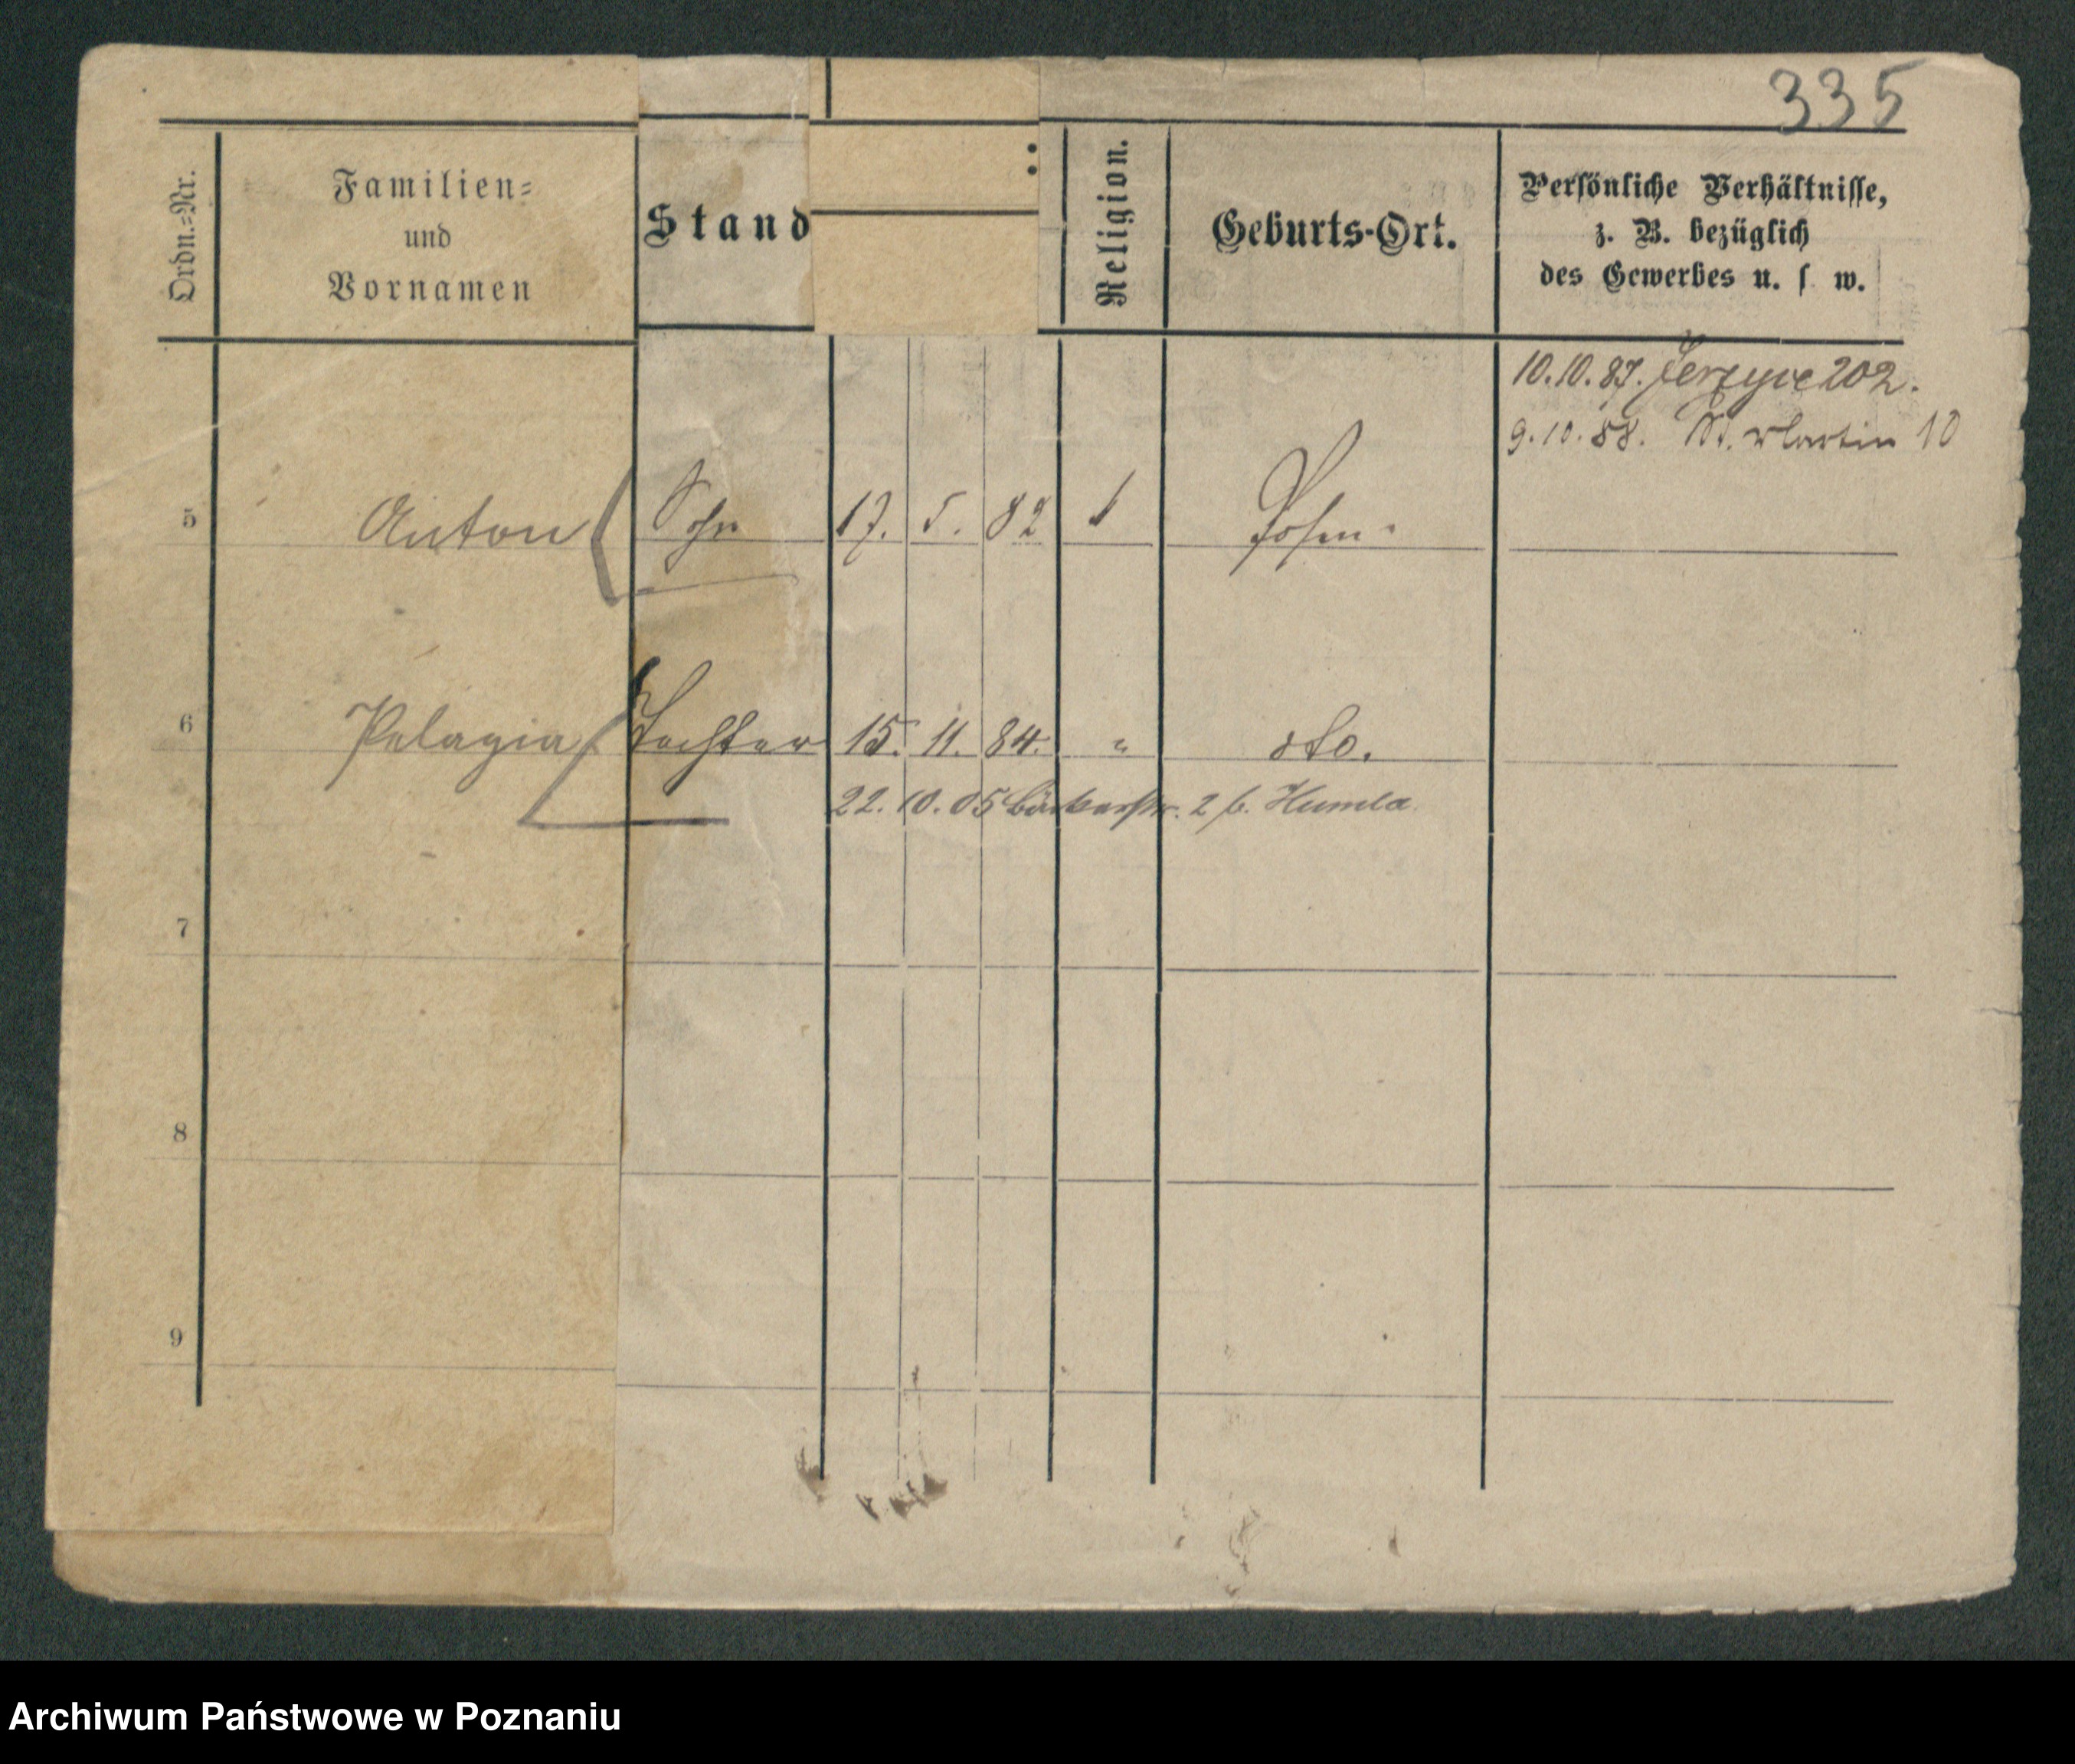 335
Ordn.=Nr.
Familien=
und
Vornamen
Stand
:
Religion.
Geburts-Ort.
Persönliche Verhältnisse,
z. B. bezüglich
des Gewerbes u. s w.
10.10.87. Jerzyce 202.
9.10.88. St. Martin 10
5 Anton Sohn 17. 5. 82 Posen
6 Pelagia Tochter 15. 11. 84. " dto.
22. 10. 05 Bäckerstr. 2 b. Humla
7
8
9
Archiwum Państwowe w Poznaniu